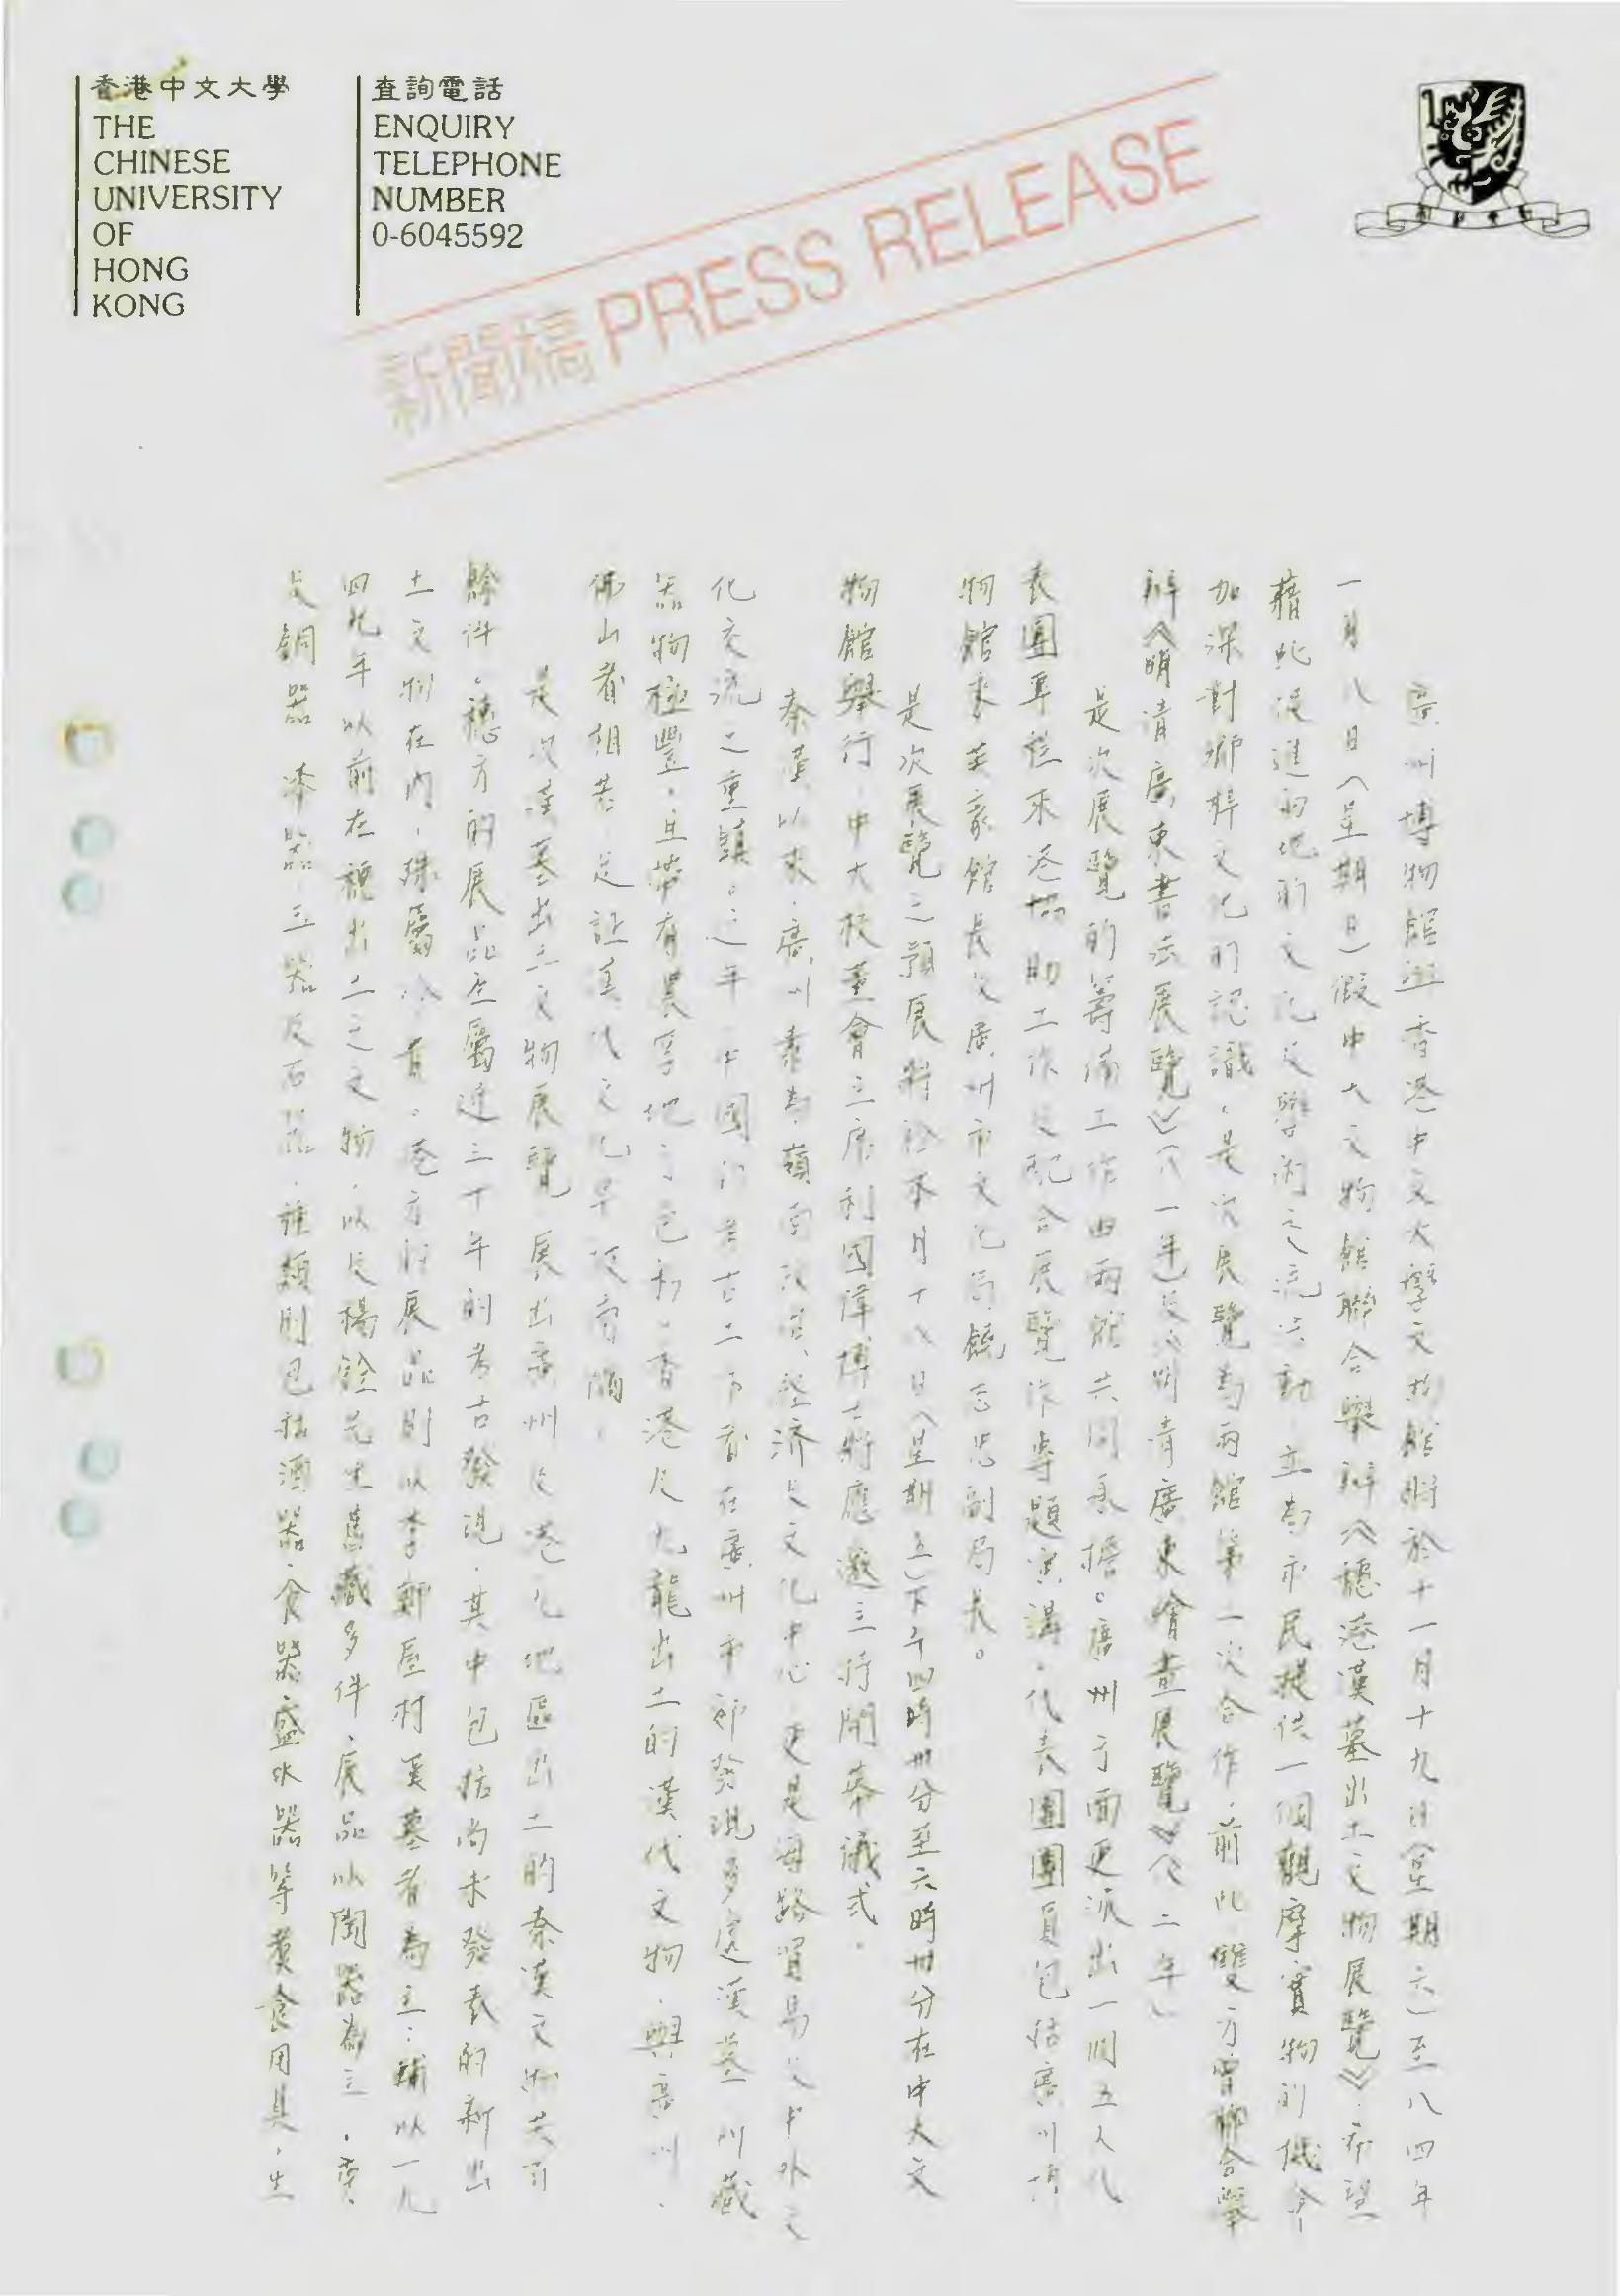 香港中文大學
THE
CHINESE
UNIVERSITY
OF
HONG
KONG
查詢電話
ENQUIRY
TELEPHONE
NUMBER
0-6045592
新聞稿 PRESS RELEASE
廣州博物館與香港中文大學文物館將於十一月十九日(星期六)至八四年
一月八日(星期日)假中大文物館聯合舉辦《穗港漢墓出土文物展覽》,希望
藉此促進兩地的文化及學術之流活動,並為市民提供一個觀摩實物的機會,
加深對鄉邦文化的認識。是次展覽為兩館第一次合作,前此,雙方曾聯合舉
辦《明清廣東書法展覽》(八一年)及《明清廣東繪畫展覽》(八二年)
是次展覽的籌備工作由兩館共同承擔。廣州方面更派出一個五人代
表團專程來港協助工作及配合展覽作專題演講,代表團團員包括廣州博
物館來英豪館長及廣州市文化局饒志忠副局長。
是次展覽之預展將於本月十八日(星期五)下午四時卅分至六時卅分在中大文
物館舉行,中大校董會主席利國偉博士將應邀主持開幕儀式。
秦漢以來,廣州素為嶺南政治、經濟及文化中心,更是海路貿易及中外文
化交流之重鎮。近年,中國的考古工作者在廣州市郊發現多處漢墓,所藏
器物極豐,且帶有濃厚地方色彩。香港及九龍出土的漢代文物,與廣州、
佛山者相若,足証漢代文化早及南隅。
是次漢墓出土文物展覽,展出廣州及港九地區出土的秦漢文物共百
餘件。穗方的展品全屬近三十年的考古發現,其中包括尚未發表的新出
土文物在內,殊屬珍貴。港方的展品則以李鄭屋村漢墓者為主;輔以一九
四九年以前在穗出土之文物,以及楊銓先生舊藏多件。展品以陶器為主,亦
及銅器、漆器、玉器及石器,種類則包括酒器、食器、盛水器等煮食用具,生